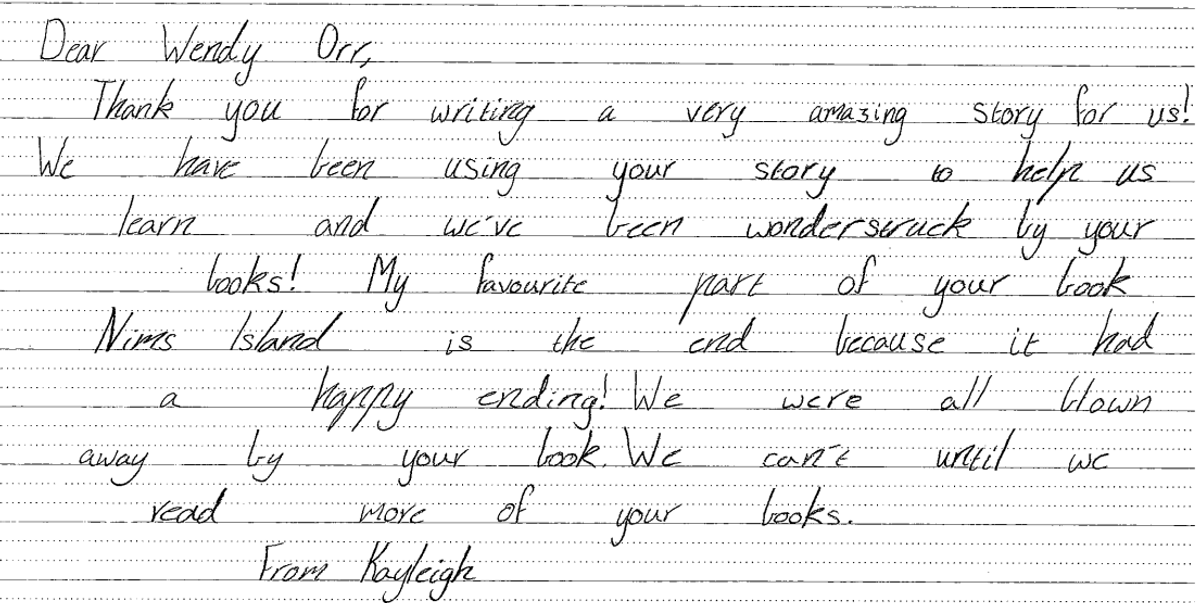 Dear Wendy Orr,
Thank you for writing a very amazing story for us!
We have been using your story to help us
learn and we've been wonderstruck by your
books! My favourite part of your book
Nims Island is the end because it had
a happy ending! We were all blown
away by your book. We can't until we
read more of your books.
From Kayleigh